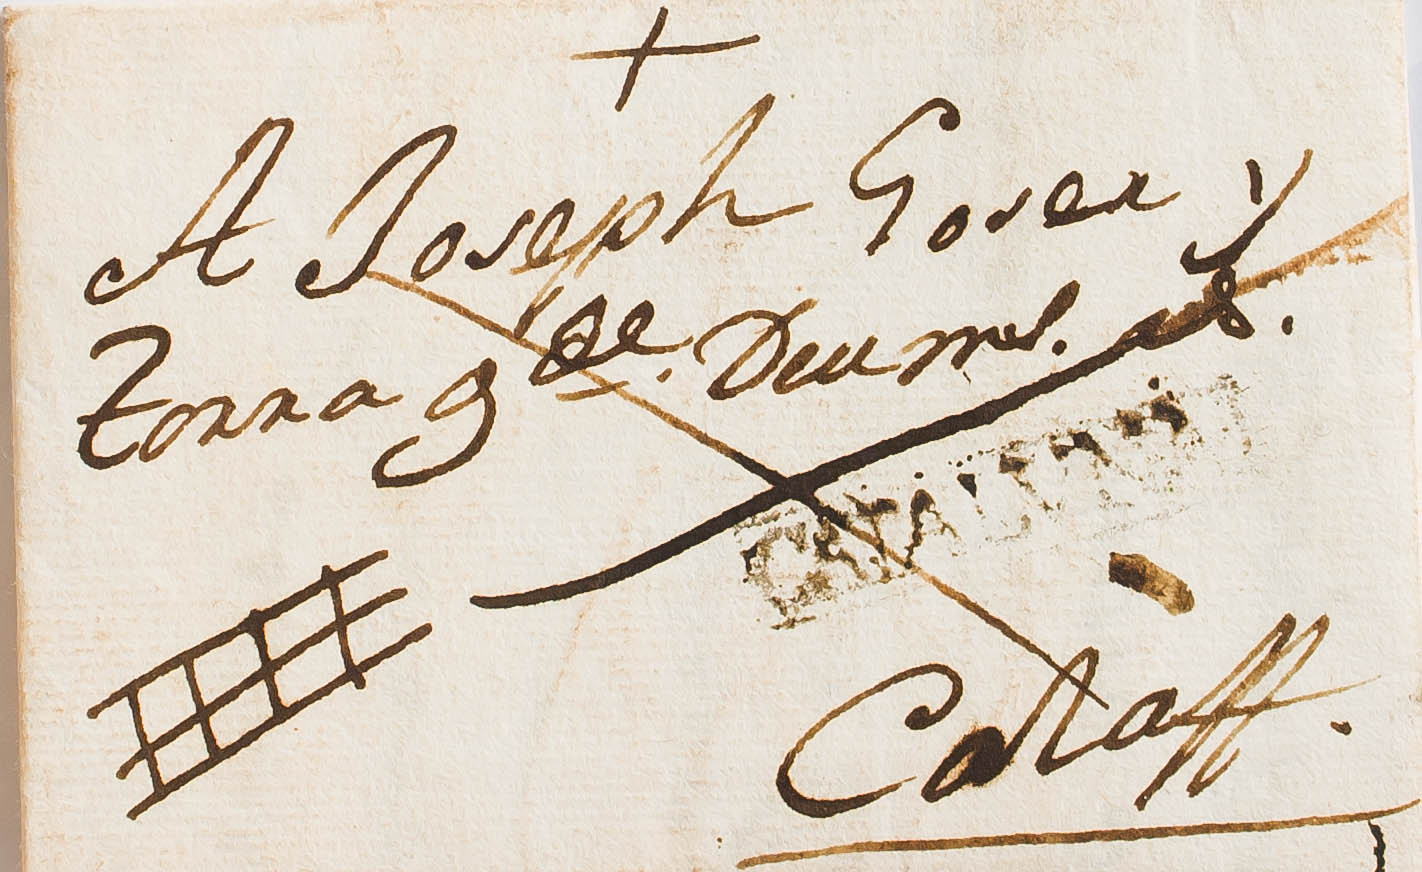 A Joseph Gover y
Torra g^de. Deu ms. as.
CATALUÑA
Calaff.